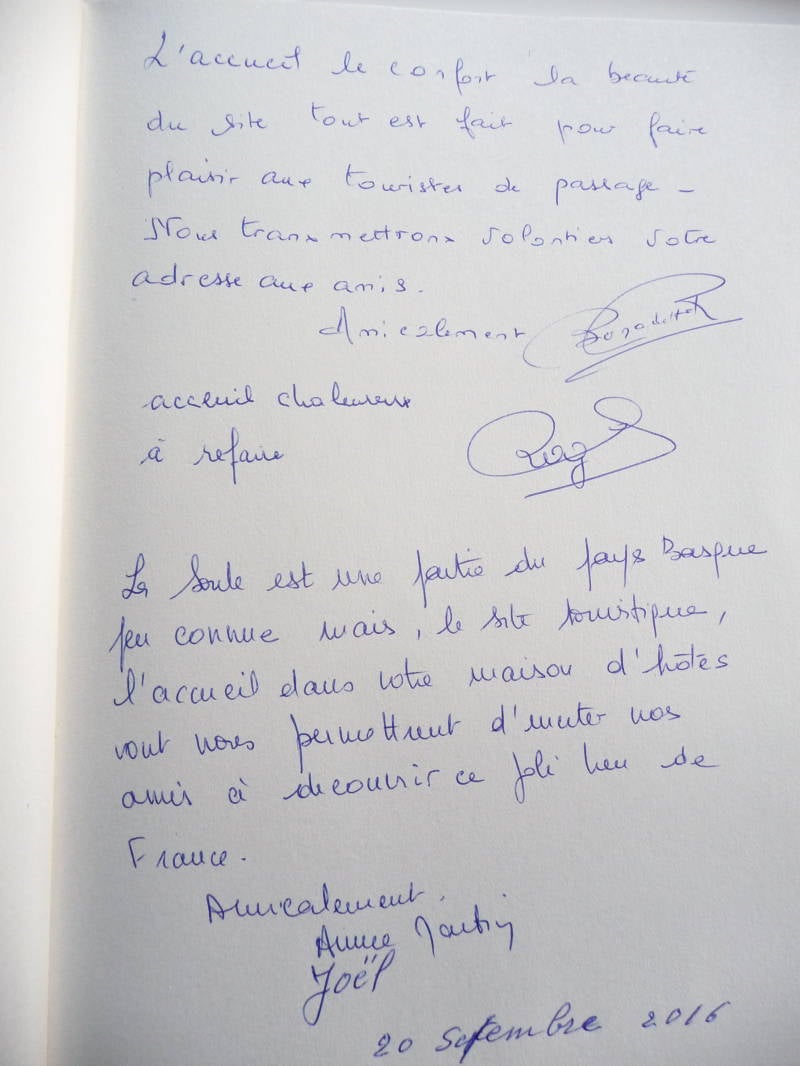 L'accueil le confort la beauté
du site tout est fait pour faire
plaisir aux touristes de passage -
Nous transmettrons volontiers votre
adresse aux amis.
Amicalement
acceuil chaleureux
à refaire
La Soule est une partie du pays Basque
peu connue mais, le site touristique,
l'accueil dans votre maison d'hôtes
vont nous permettrent d'inviter nos
amis à découvrir ce joli lieu de
France.
Amicalement.
Annie
Joël
20 Septembre 2016